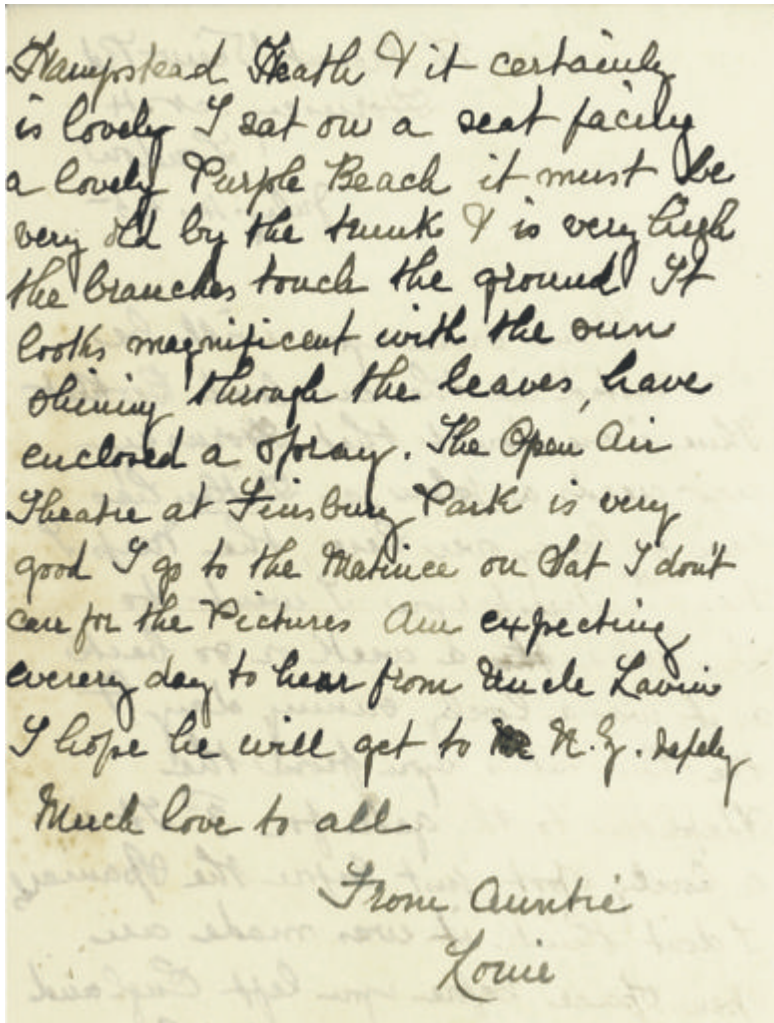 Hampstead Heath & it certainly
is lovely I sat on a seat facing
a lovely Purple Beach it must be
very old by the trunk & is very high
the branches touch the ground It
looks magnificent with the sun
shining through the leaves, have
enclosed a spray. The Open Air
Theatre at Finsbury Park is very
good I go to the Matinee on Sat I don't
care for the Pictures Am expecting
everery day to hear from Uncle
I hope he will get to N.Z. safely
Much love to all
From Auntie
Louie